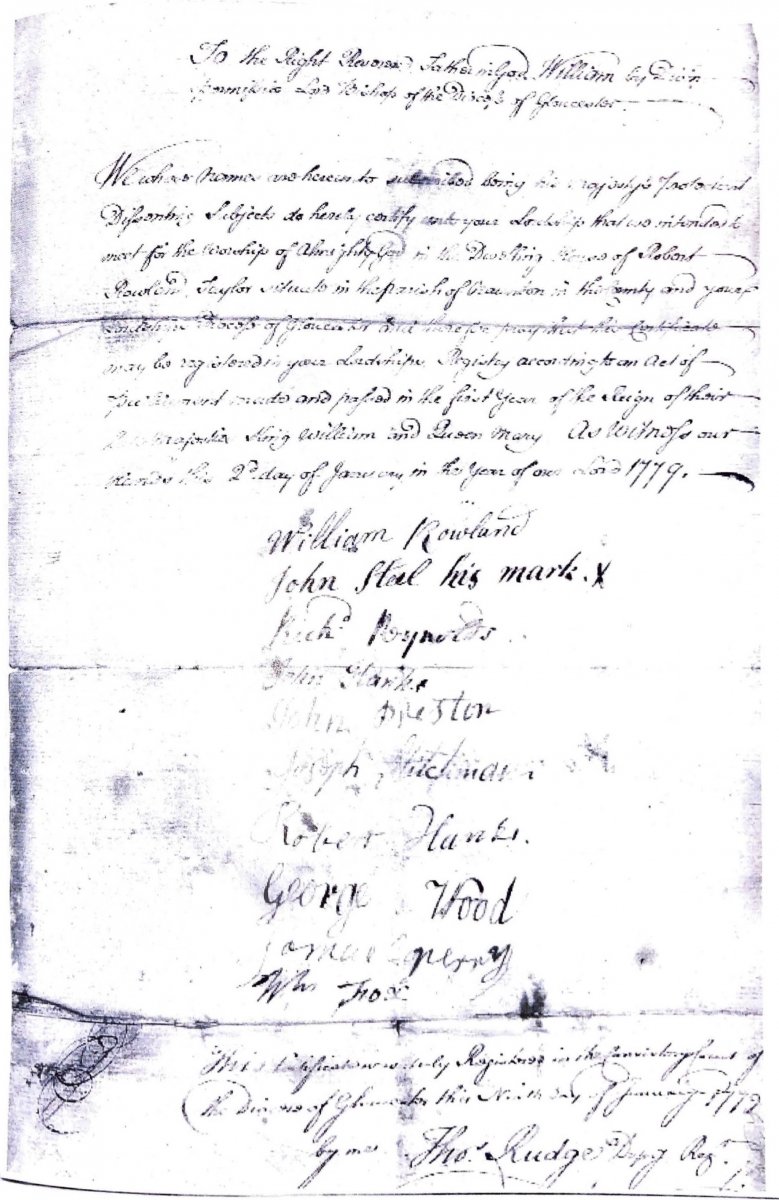 To the Right Reverend Father in God William by Divin
Permission Lord Bishop of the Diocess of Gloucester
We whose Names are hereunto subscribed being his Majestys Protestant
Dissenting Subjects do hereby certify unto your Lordship that we intend to
meet for the Worship of Almighty God in the Dwelling House of Robert
Rowland Taylor situate in the parish of in the County and your
Lordships Diocess of Gloucester and therefore pray that this Certificate
may be registered in your Lordships Registry according to an Act of
Parliament made and passed in the first Year of the Reign of their
Majesties King William and Queen Mary As Witness our
Hands this 2d. day of January in the Year of our Lord 1779.
William Rowland
John Steel his mark. X
Richd Reynolds
John
John Preston
Joseph
Robert Hanks.
George Wood
perry
Wm
This Certificate was duly Registered in the Consistory Court of
the Diocess of Gloucester this Ninth day of January 1779
by me Thos. Rudge Depy Regr.